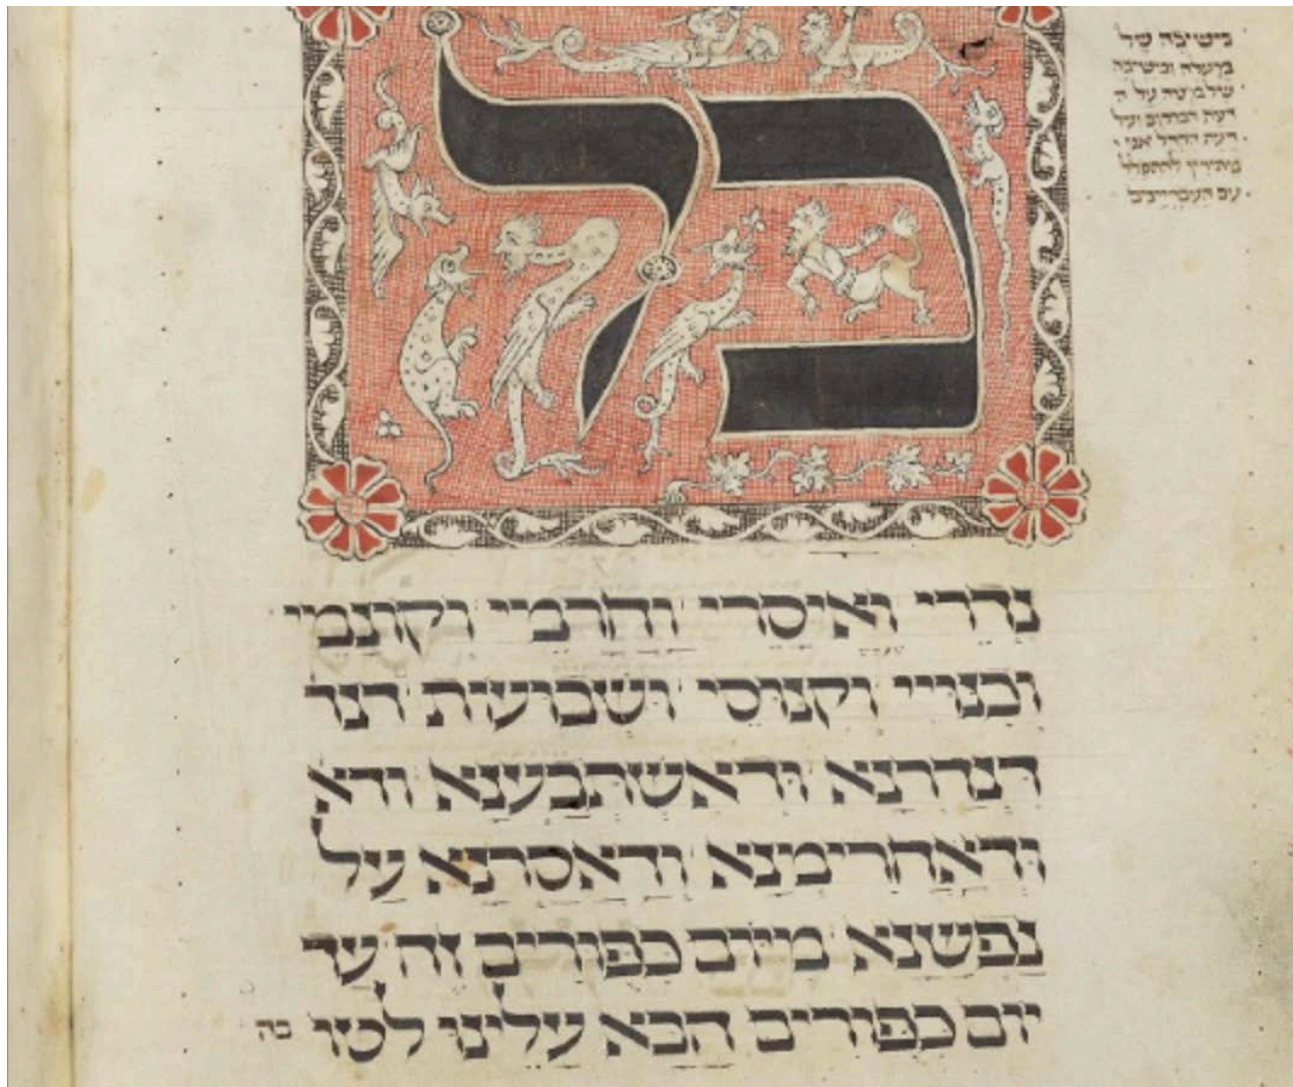 בישיבה של
מעלה ובישיבה
של מטה על ד
דעת המקום ועל
דעת הקהל אנו
מתירין להתפלל
עם העבריינים
כל
נדרי ואיסרי וחרמי וקונמי
וכנויי וקנוסי ושבועות דנד
דנדרנא ודאשתבענא ודא
ודאחרימנא ודאסרנא על
נפשנא מיום כפורים זה עד
יום כפורים הבא עלינו לטו בה